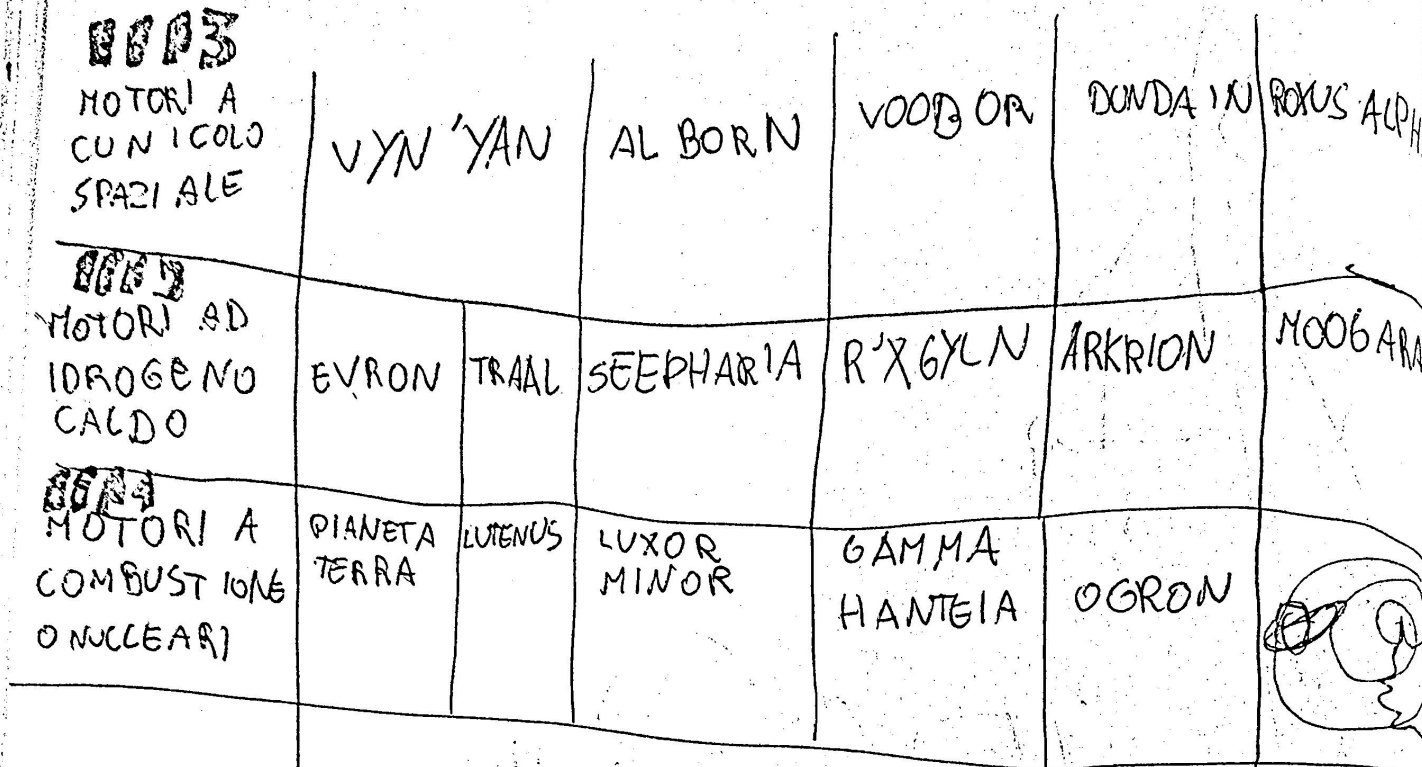 MOTORI A
CUNICOLO
SPAZIALE
VYN'YAN
ALBORN
VOOBOR
DUNDAIN
ROXUS ALPH
MOTORI AD
IDROGENO
CALDO
EVRON
TRAAL
SEEPHARIA
R'XGYLN
ARKRION
MOOGARA
MOTORI A
COMBUSTIONE
O NUCLEARI
PIANETA
TERRA
LUTENUS
LUXOR
MINOR
GAMMA
HANTEIA
OGRON